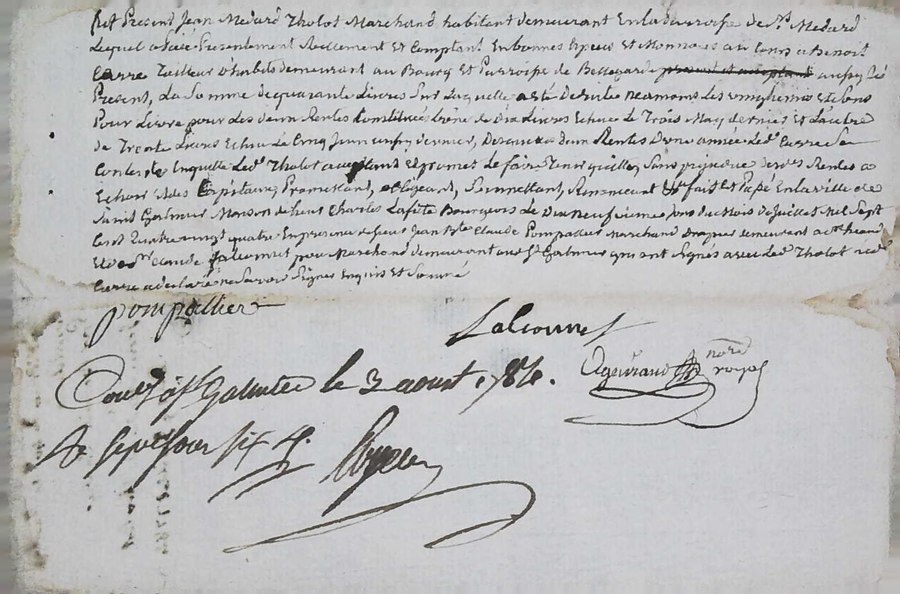 fut Present Jean Medard Tholot Marchand habitant demeurant En la de paroisse de St Medard
Lequel a payé Presentement Reellement Et Comptant En bonnes Especes Et Monnoies au Cours a Benoit
Carre Tailleur D'habits demeurant au Bourg Et Parroisse de Bellegarde
Present, La Somme de quarante Livres Sur Laquelle a eté Deduite neamoins Les vinghiemes Et Sous
Pour Livre pour Les deux Rentes Constituées L'une de Dix Livres Echue Le Trois May dernier Et L'autre
de Trente Livres Echue Le Cinq Juin aussy dernier, Desquelles deux Rentes D'une année Led. Carre Se
Contente Et quitte Led. Tholot acceptant Et promet de faire Tenir quitte, Sans prejudice Rentes a
Echoir Et des Capitaux, Promettant, obligeant, Soumettant, Renonceant fait Et Passé En La ville de
Saint Galmier Maison de Sieur Charles Lafite Bourgeois Le Dix neufiemes Jour du Mois de Juillet Mil Sept
Cent Quatre vingt quatre En presence de Sieur Jean Claude Pompallier Marchand Drapier demeurant
Et de Claude Lalconnet Marchand demeurant aud. St Galmier qui ont Signés avec Led. Tholot
Carre a declaré ne Savoir Signer Enquis Et Sommé
pompallier
Lalconnet
nore
royal
Galmier le 3 aoust 1784.